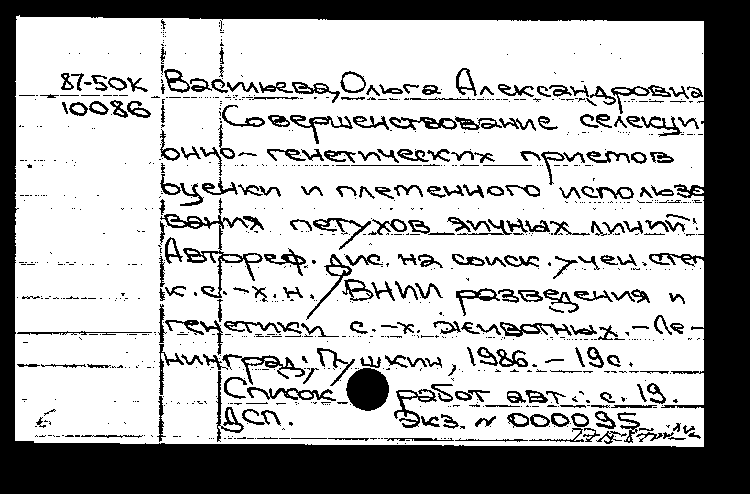 87-50К Васильева, Ольга Александровна
10086 Совершенствование селекци-
онно-генетических приемов
оценки и племенного использо
вания петухов яичных линий:
Автореф. дис. на соиск. учен. степ
к.с.-х.н. / ВНИИ разведения и
генетики с.-х. животных. - Ле-
нинград; Пушкин, 1986. - 19с.
Список работ авт.: с. 19.
ДСП. Экз. № 000095